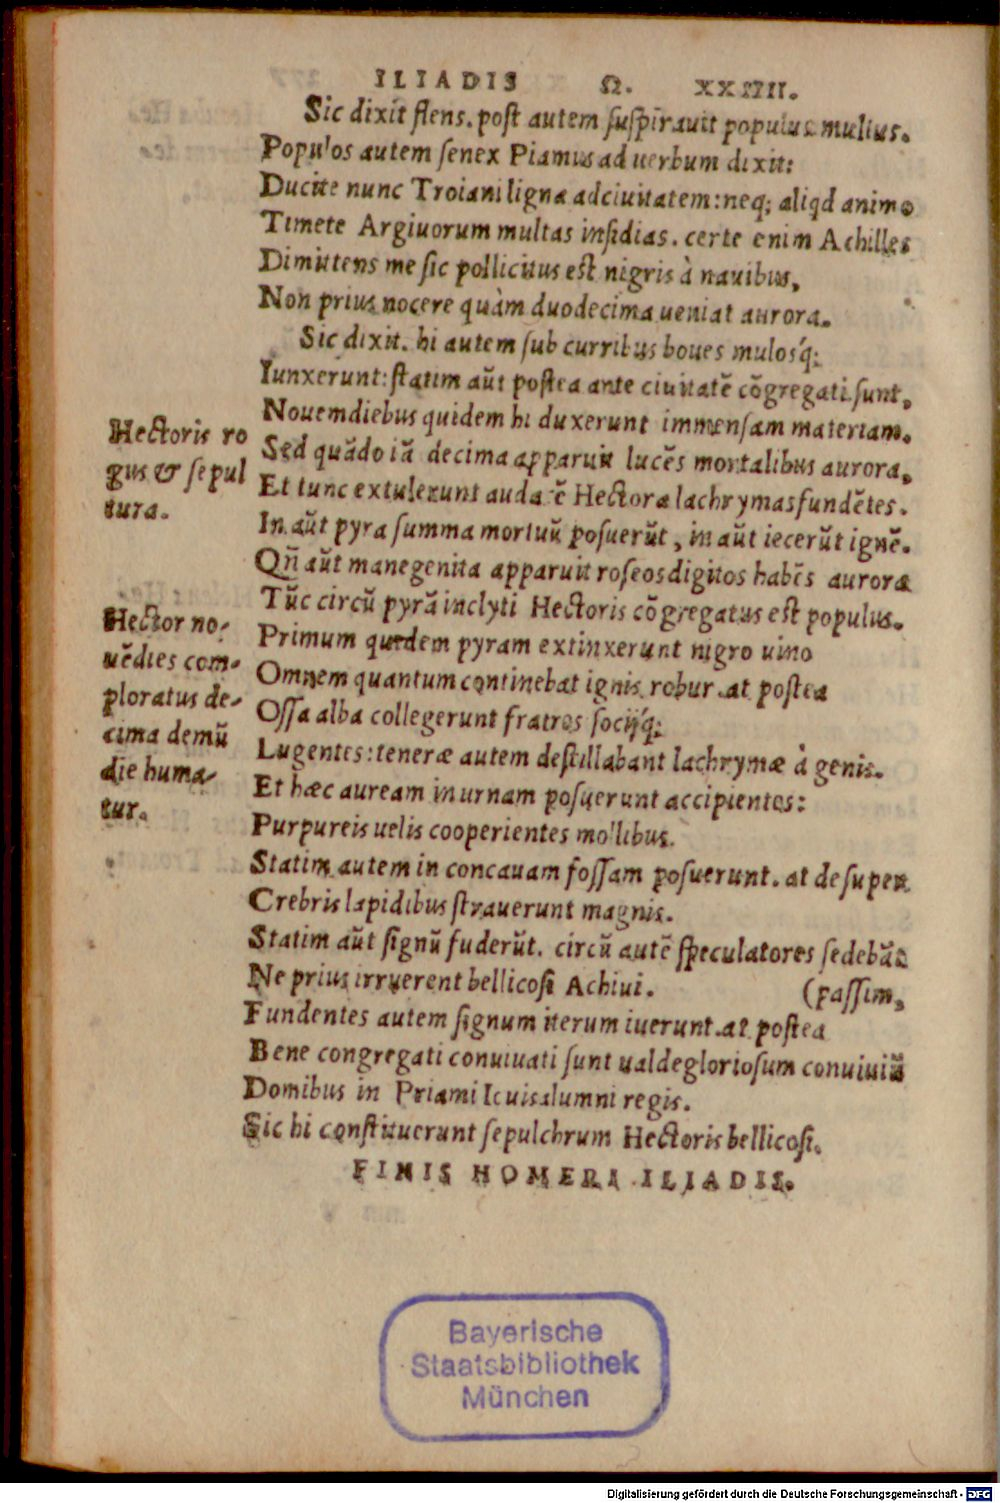 ILIADIS Ω. XXIIII.
Sic dixit flens. post autem suspirauit populus multus.
Populos autem senex Piamus ad uerbum dixit:
Ducite nunc Troiani ligna adciuitatem: neq; aliqd animo
Timete Argiuorum multas insidias. certe enim Achilles
Dimittens me sic pollicitus est nigris à nauibus,
Non prius nocere quàm duodecima ueniat aurora.
Sic dixit. hi autem sub curribus boues mulosq́;
Iunxerunt: statim aũt postea ante ciuitatẽ cõgregati sunt,
Nouemdiebus quidem hi duxerunt immensam materiam.
Sed quãdo iã decima apparuit lucẽs mortalibus aurora,
Et tunc extulerunt audacẽ Hectora lachrymas fundẽtes.
In aũt pyra summa mortuũ posuerũt, in aũt iecerũt ignẽ.
Qñ aũt manegenita apparuit roseos digitos habẽs aurora
Tũc circũ pyrã inclyti Hectoris cõgregatus est populus.
Primum quidem pyram extinxerunt nigro uino
Omnem quantum continebat ignis robur. at postea
Ossa alba collegerunt fratres socijq́;
Lugentes: teneræ autem destillabant lachrymæ à genis.
Et hæc auream in urnam posuerunt accipientes:
Purpureis uelis cooperientes mollibus.
Statim autem in concauam fossam posuerunt. at desuper
Crebris lapidibus strauerunt magnis.
Statim aũt signũ fuderũt. circũ autẽ speculatores sedebãt
Ne prius irruerent bellicosi Achiui. (passim,
Fundentes autem signum iterum iuerunt. at postea
Bene congregati conuiuati sunt ualdegloriosum conuiuiũ
Domibus in Priami Iouisalumni regis.
Sic hi constituerunt sepulchrum Hectoris bellicosi.
FINIS HOMERI ILIADIS.
Hectoris ro
gus & sepul
tura.
Hector no-
uẽdies com-
ploratus de-
cima demũ
die huma-
tur.
Bayerische
Staatsbibliothek
München
Digitalisierung gefördert durch die Deutsche Forschungsgemeinschaft - DFG